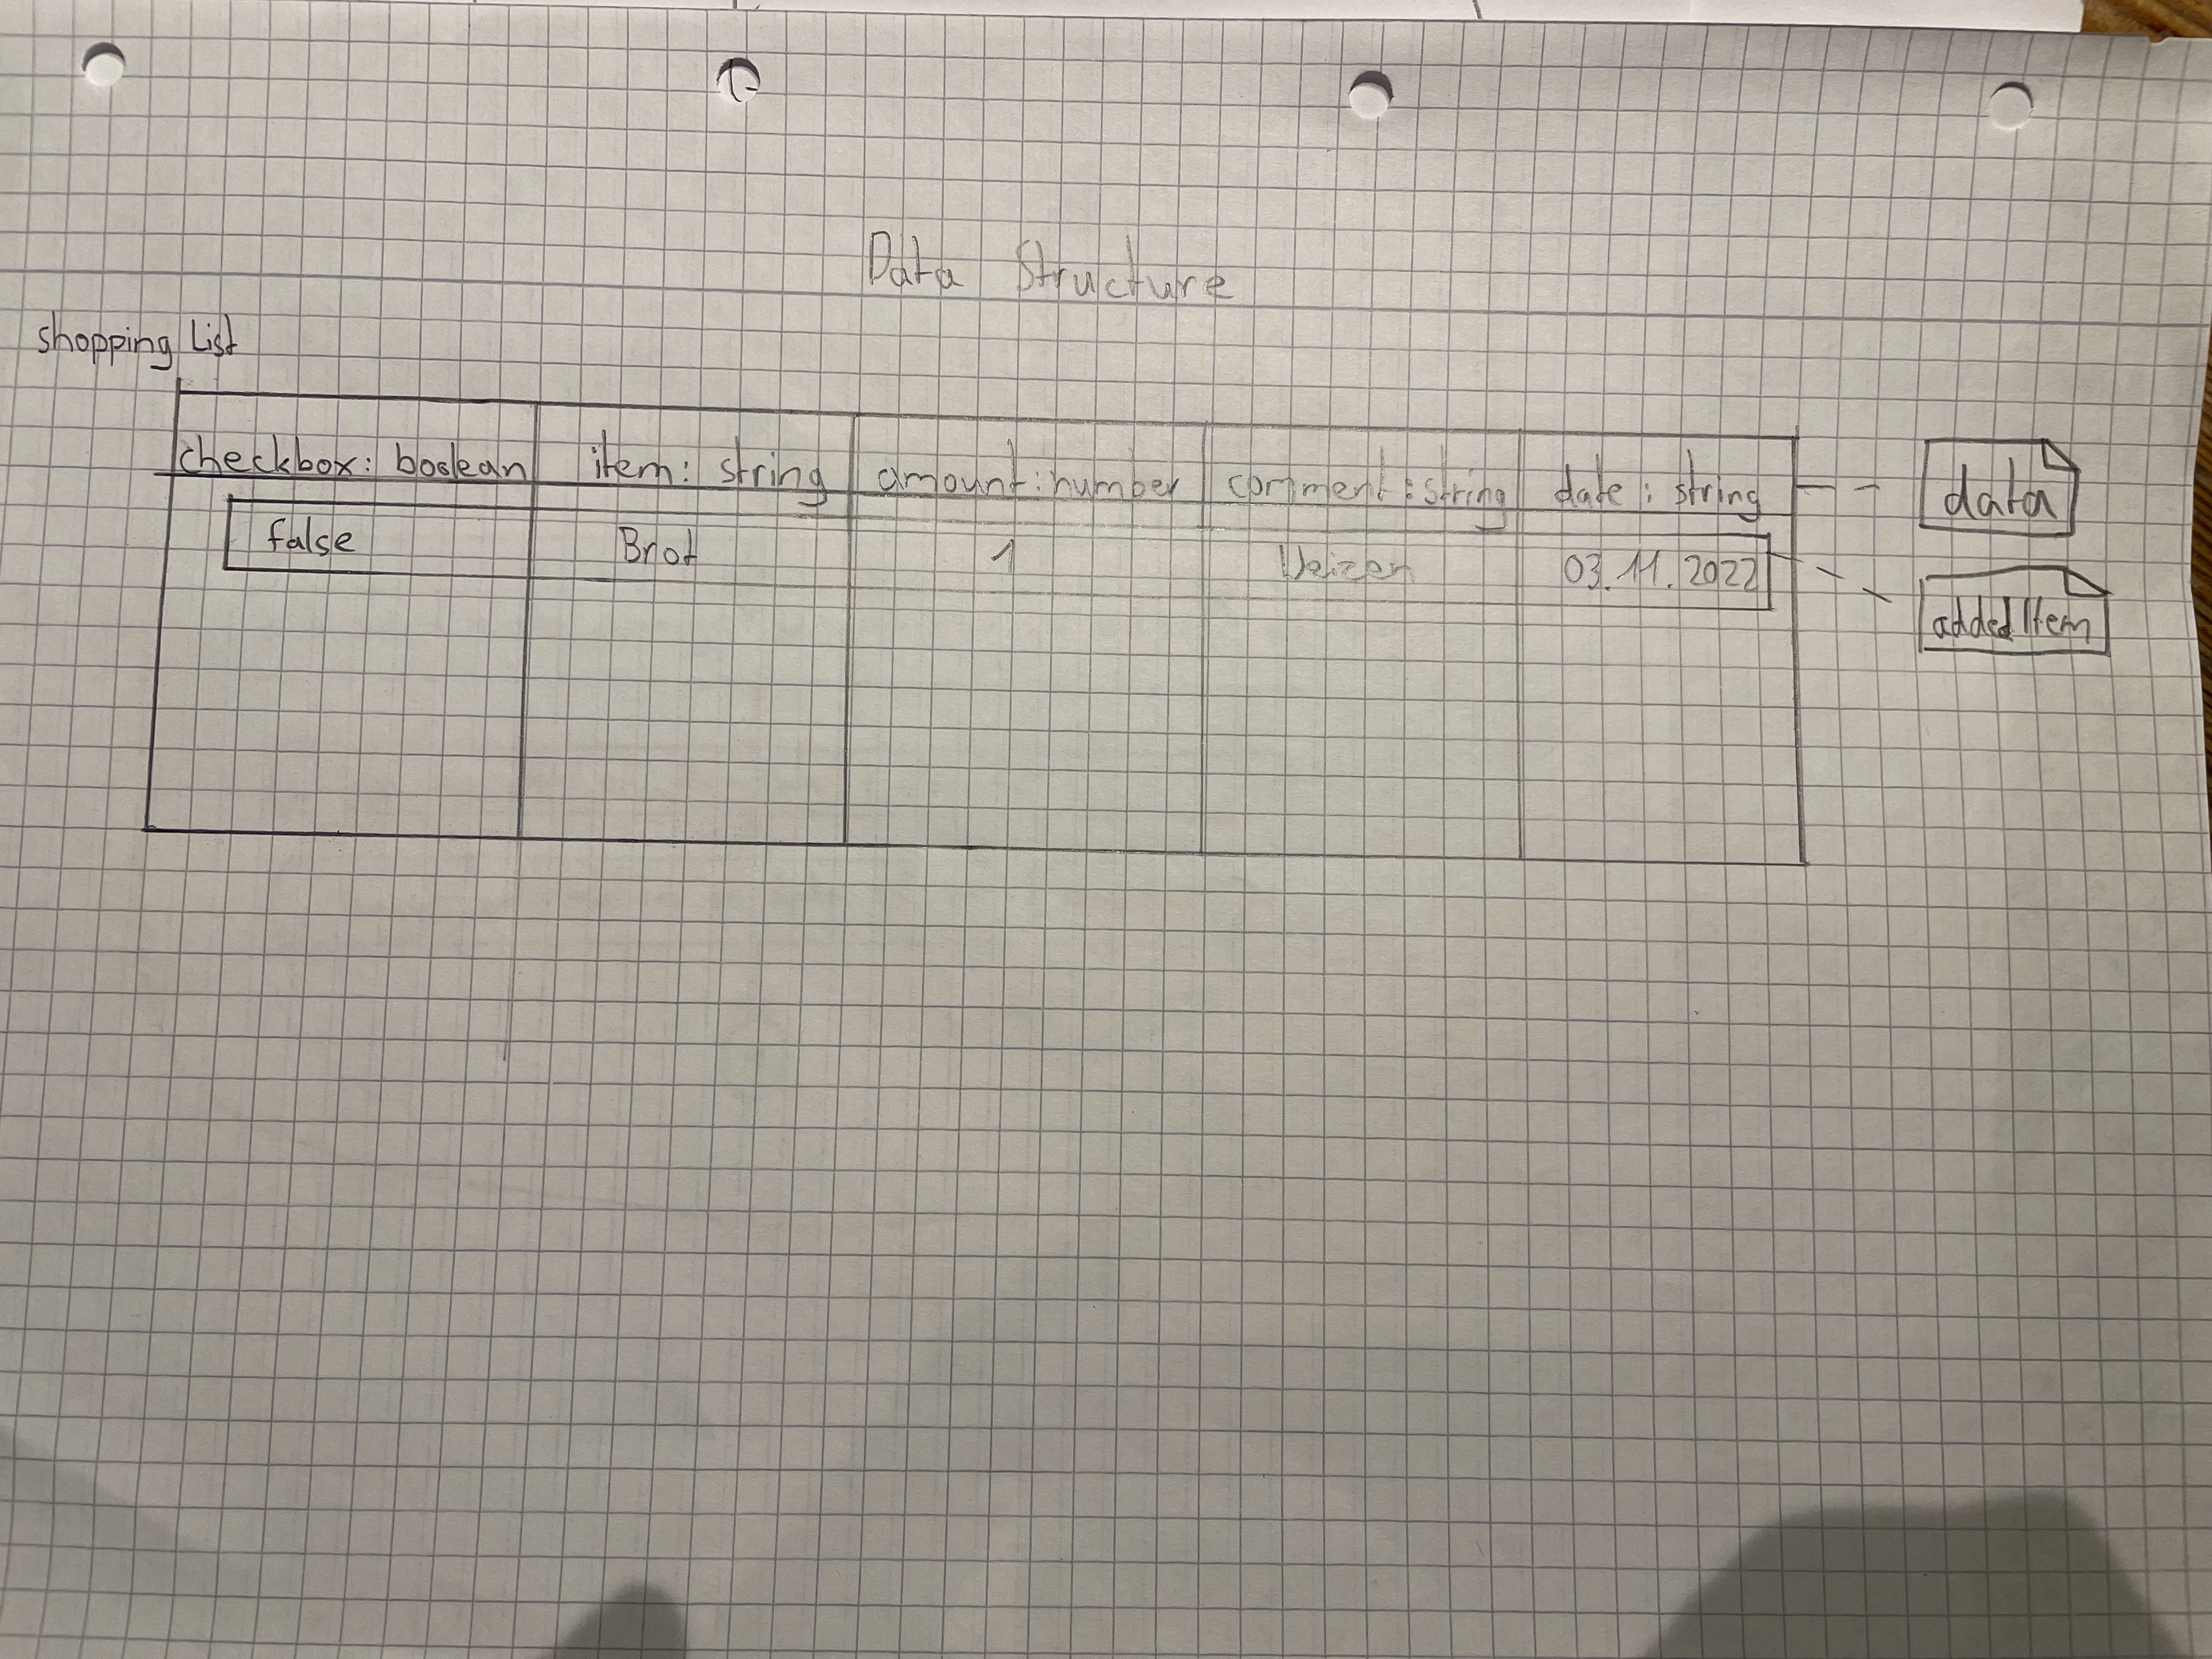 Data Structure
Shopping List
checkbox: boolean item: string amount: number comment: string date: string data
false Brot 1 Weizen 03.11.2022 addedItem